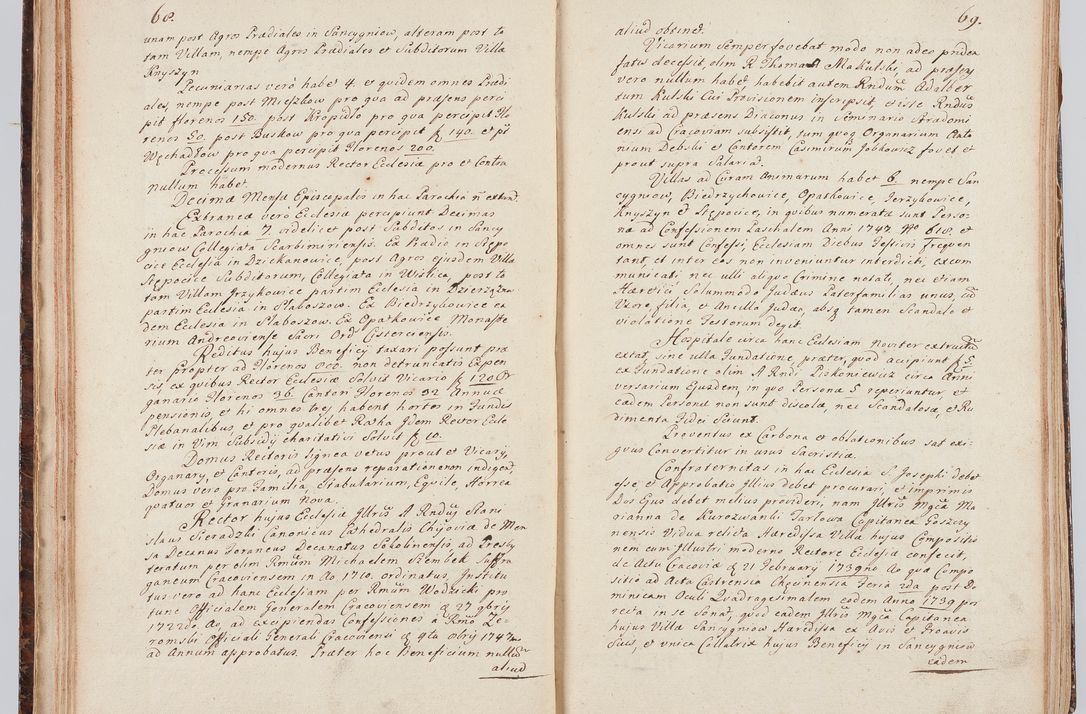 68.
unam post Agros Prædiales in Sancygniow, alteram post to
tam Villam, nempe Agros Prædiales et Subditorum Villæ
Knyszyn
Pecuniarias verò habet 4. et quidem omnes Prædi
ales, nempe post Mieszkow pro qua ad præsens perci
pit florenos 150. post Kropidło pro qua percipit Flo
renos 50. post Buskow pro qua percipit f 140. et pt
Węchadłow pro qua percipit Florenos 200.
Processum modernus Rector Ecclesiæ pro et Contra
nullum habet.
Decimæ Mensæ Episcopalis in hac Parochia ñ extant.
Extraneæ verò Ecclesiæ percipiunt Decimas
in hac Parochia 7. videlicet post Subditos in Sancy
gniow Collegiata Scarbimiriensis. Ex Prædio in Stępo
cice Ecclesia in Dziekanowice, post Agros ejusdem Villæ
Stępocice Subditorum, Collegiata in Wislica, post to
tam Villam Jrzykowice partim Ecclesia in Dzierążna
partim Ecclesia in Słaboszow. Ex Biedrzykowice ea
dem Ecclesia in Słaboszow. Ex Opatkowice Monaste
rium Andreoviense Sacri Ord: Cisterciensis.
Reditus hujus Beneficij taxari possunt præ
ter propter ad Florenos 800. non detruncatis Expen
sis, ex quibus Rector Ecclesiæ Solvit Vicario f 120 Or
ganario Florenos 36. Cantori Florenos 32 Annuæ
pensionis, et hi omnes tres habent hortos in Fundis
Plebanalibus, et pro qualibet Ratha Jdem Rector Eccle
siæ in Vim Subsidij charitativi Solvit f 10.
Domus Rectoris lignea vetus prout et Vicarij,
Organarij, et Cantoris, ad præsens reparatione non indiget,
Domus vero pro Familia, Stabularium, Equile, Horrea
quatuor et Granarium Nova.
Rector hujus Ecclesiæ Jllris A Rndus Stani
slaus Sieradzki Canonicus Cathedralis Chijoviæ de Men
sa Decanus Foraneus Decanatus Sokolinensis ad Presby
teratum per olim Rmum Michaelem Szembek Suffra
ganeum Cracoviensem in Ao 1710. ordinatus, Jnstitu
tus vero ad hanc Ecclesiam per Rmum Wodzicki pro
tunc Officialem Generalem Cracoviensem d 27 9bris
1722do Ao, ad excipiendas Confessiones a Rmo Że
romski Officiali Generali Cracoviensi d 9tu 8bris 1742do
ad Annum approbatus. Præter hoc Beneficium nullum
aliud
69.
aliud obtinet.
Vicarium Semper fovebat modo non adeo pridem
fatis decessit, olim R Thomas Makulski, ad præsens
vero nullum habet, habebit autem Rndum Adalber
tum Kulski Cui Provisionem inscripsit, et iste Rndus
Kulski ad præsens Diaconus in Seminario Stradomi
ensi ad Cracoviam subsistit, tum quoq Organarium Anto
nium Debski et Cantorem Casimirum Jobkowicz fovet et
prout supra Salariat.
Villas ad Curam Animarum habet 6. nempe San
cygniow, Biedrzychowice, Opatkowice, Jerzykowice,
Knyszyn et Stępocice, in quibus numeratæ sunt Perso
næ ad Confessionem Paschalem Anni 1747. No 618. et
omnes sunt Confessi, Ecclesiam Diebus Festivis frequen
tant, et inter eos non inveniuntur interdicti, excom
municati, nec ulli aliquo Crimine notati, nec etiam
Hæretici Solummodo Judæus Paterfamilias unus, cũ
Uxore, filia, et Ancilla Judæa, absq tamen Scandalo et
violatione Festorum degit.
Hospitale circa hanc Ecclesiam Noviter extructũ
extat, sine ulla Fundatione, præter, quod accipiunt f 5
ex Fundatione olim A Rndi Piskoniewicz circa Anni
versarium Ejusdem, in quo Personæ 5 reperiuntur, et
eædem Personæ non sunt discolæ, nec Scandalosæ, et Ru
dimenta Fidei Sciunt.
Proventus ex Carbona et oblationibus sat exi
guus Convertitur in usus Sacristiæ.
Confraternitas in hac Ecclesia S. Josephi debet
esse et Approbatio Jllius debet procurari, et imprimis
Dos Ejus debet melius provideri, nam Jllris Mgca Ma
rianna de Kurozwanki Tarlowa Capitanea Goszczy
nensis Vidua relicta Hæredissa Villæ hujus Compositio
nem cum Jllustri moderno Rectore Ecclesiæ confecit,
de Actu Cracoviæ d 21 Februarij 1739no Ao quæ Compo
sitio ad Acta Castrensia Chęcinensia Feria 2da post Do
minicam Oculi Quadragesimalem eodem Anno 1739 por
recta in se Sonat, quod eadem Jllris Mgca Capitanea
hujus Villæ Sancygniow Hæredissa ex Avis et Proavis
Suis, et unica Collatrix hujus Beneficij in Sancygniow
eadem